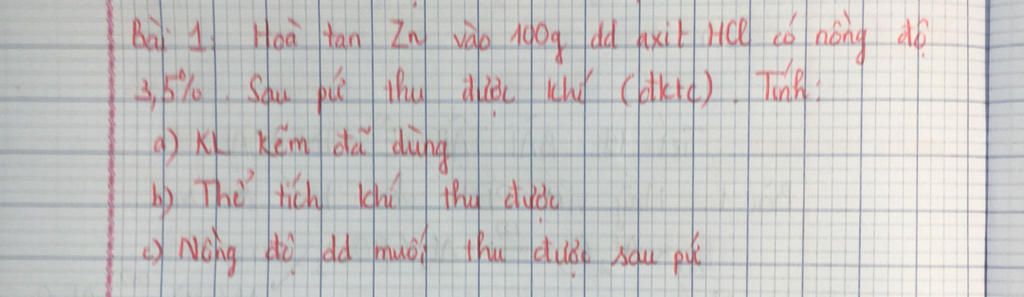 Bài 1. Hoà tan Zn vào 100g dd axit HCl có nồng độ
3,5%. Sau pứ thu được khí (đktc). Tính:
a) KL kẽm đã dùng
b) Thể tích khí thu được
c) Nồng độ dd muối thu được sau pứ